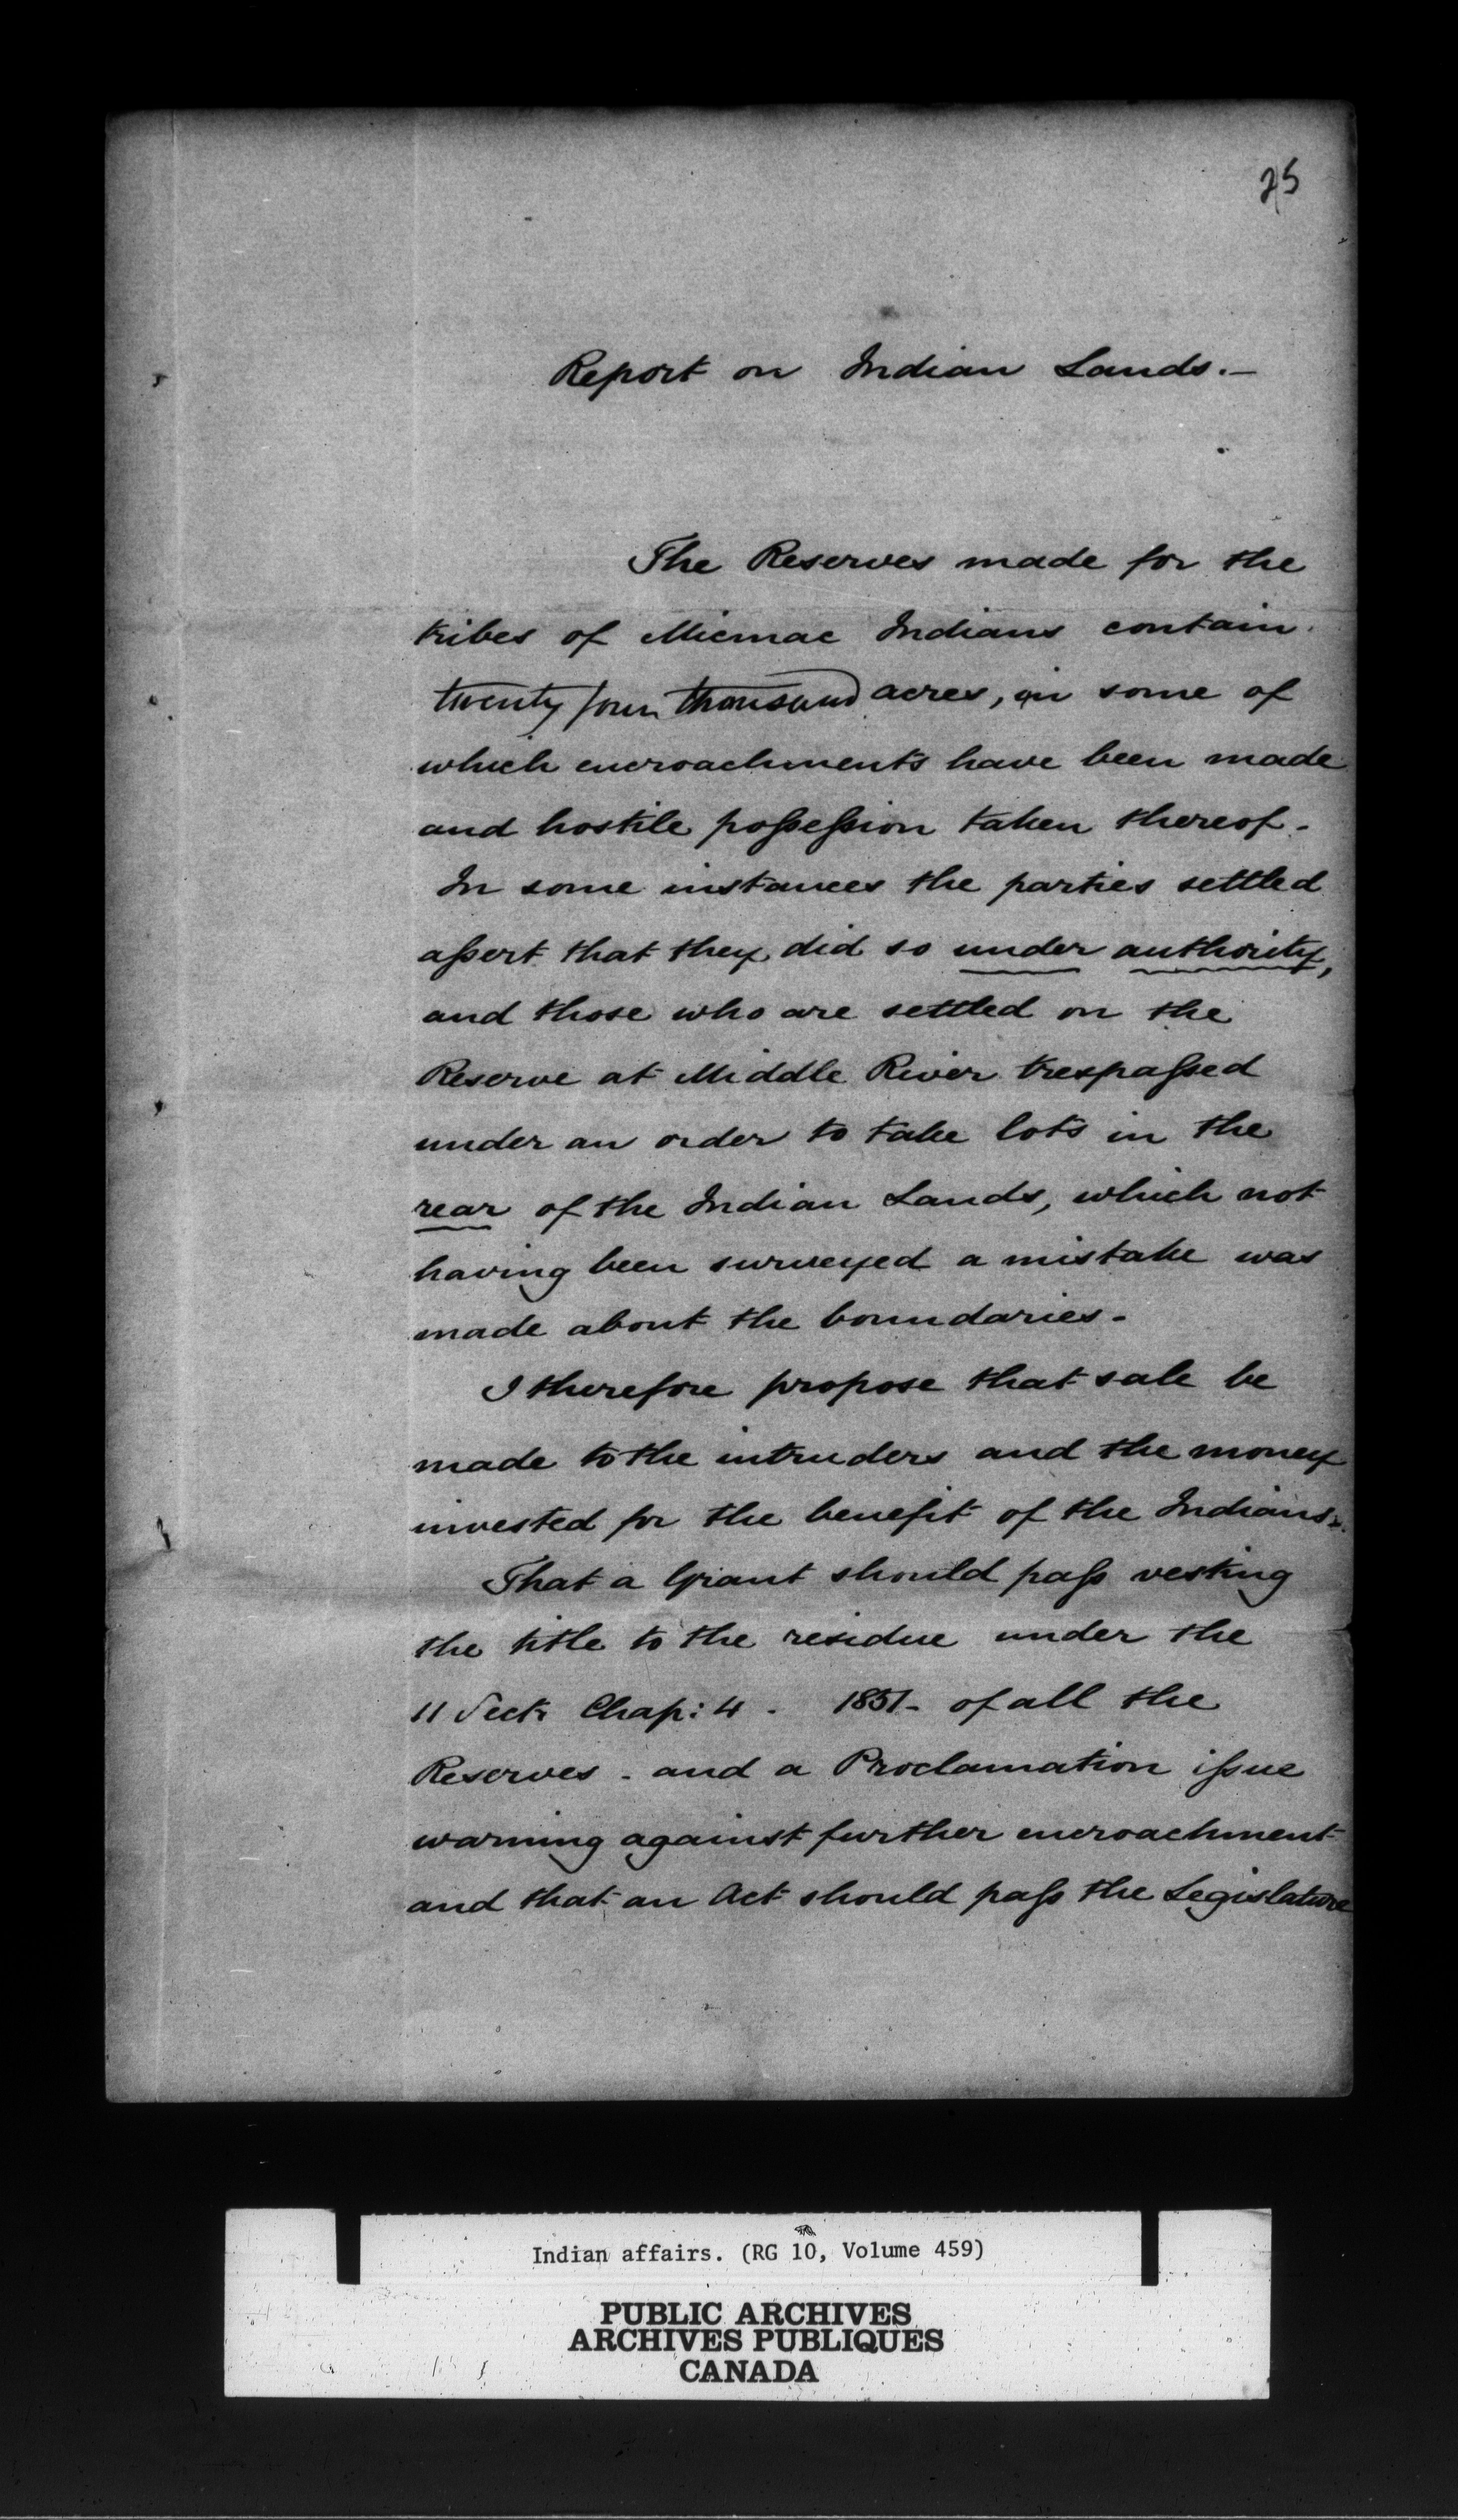 25
Report on Indian Lands.—
The Reserves made for the
tribes of Micmac Indians contain
twenty four thousand acres, in some of
which encroachments have been made
and hostile possession taken thereof.
In some instances the parties settled
assert that they did so under authority,
and those who are settled on the
Reserve at Middle River trespassed
under an order to take lots in the
rear of the Indian Lands, which not
having been surveyed a mistake was
made about the boundaries.
I therefore propose that sale be
made to the intruders and the money
invested for the benefit of the Indians.
That a Grant should pass vesting
the title to the residue under the
11 Sect. Chap: 4. 1851- of all the
Reserves - and a Proclamation issue
warning against further encroachment
and that an Act should pass the Legislature
Indian affairs. (RG 10, Volume 459)
PUBLIC ARCHIVES
ARCHIVES PUBLIQUES
CANADA